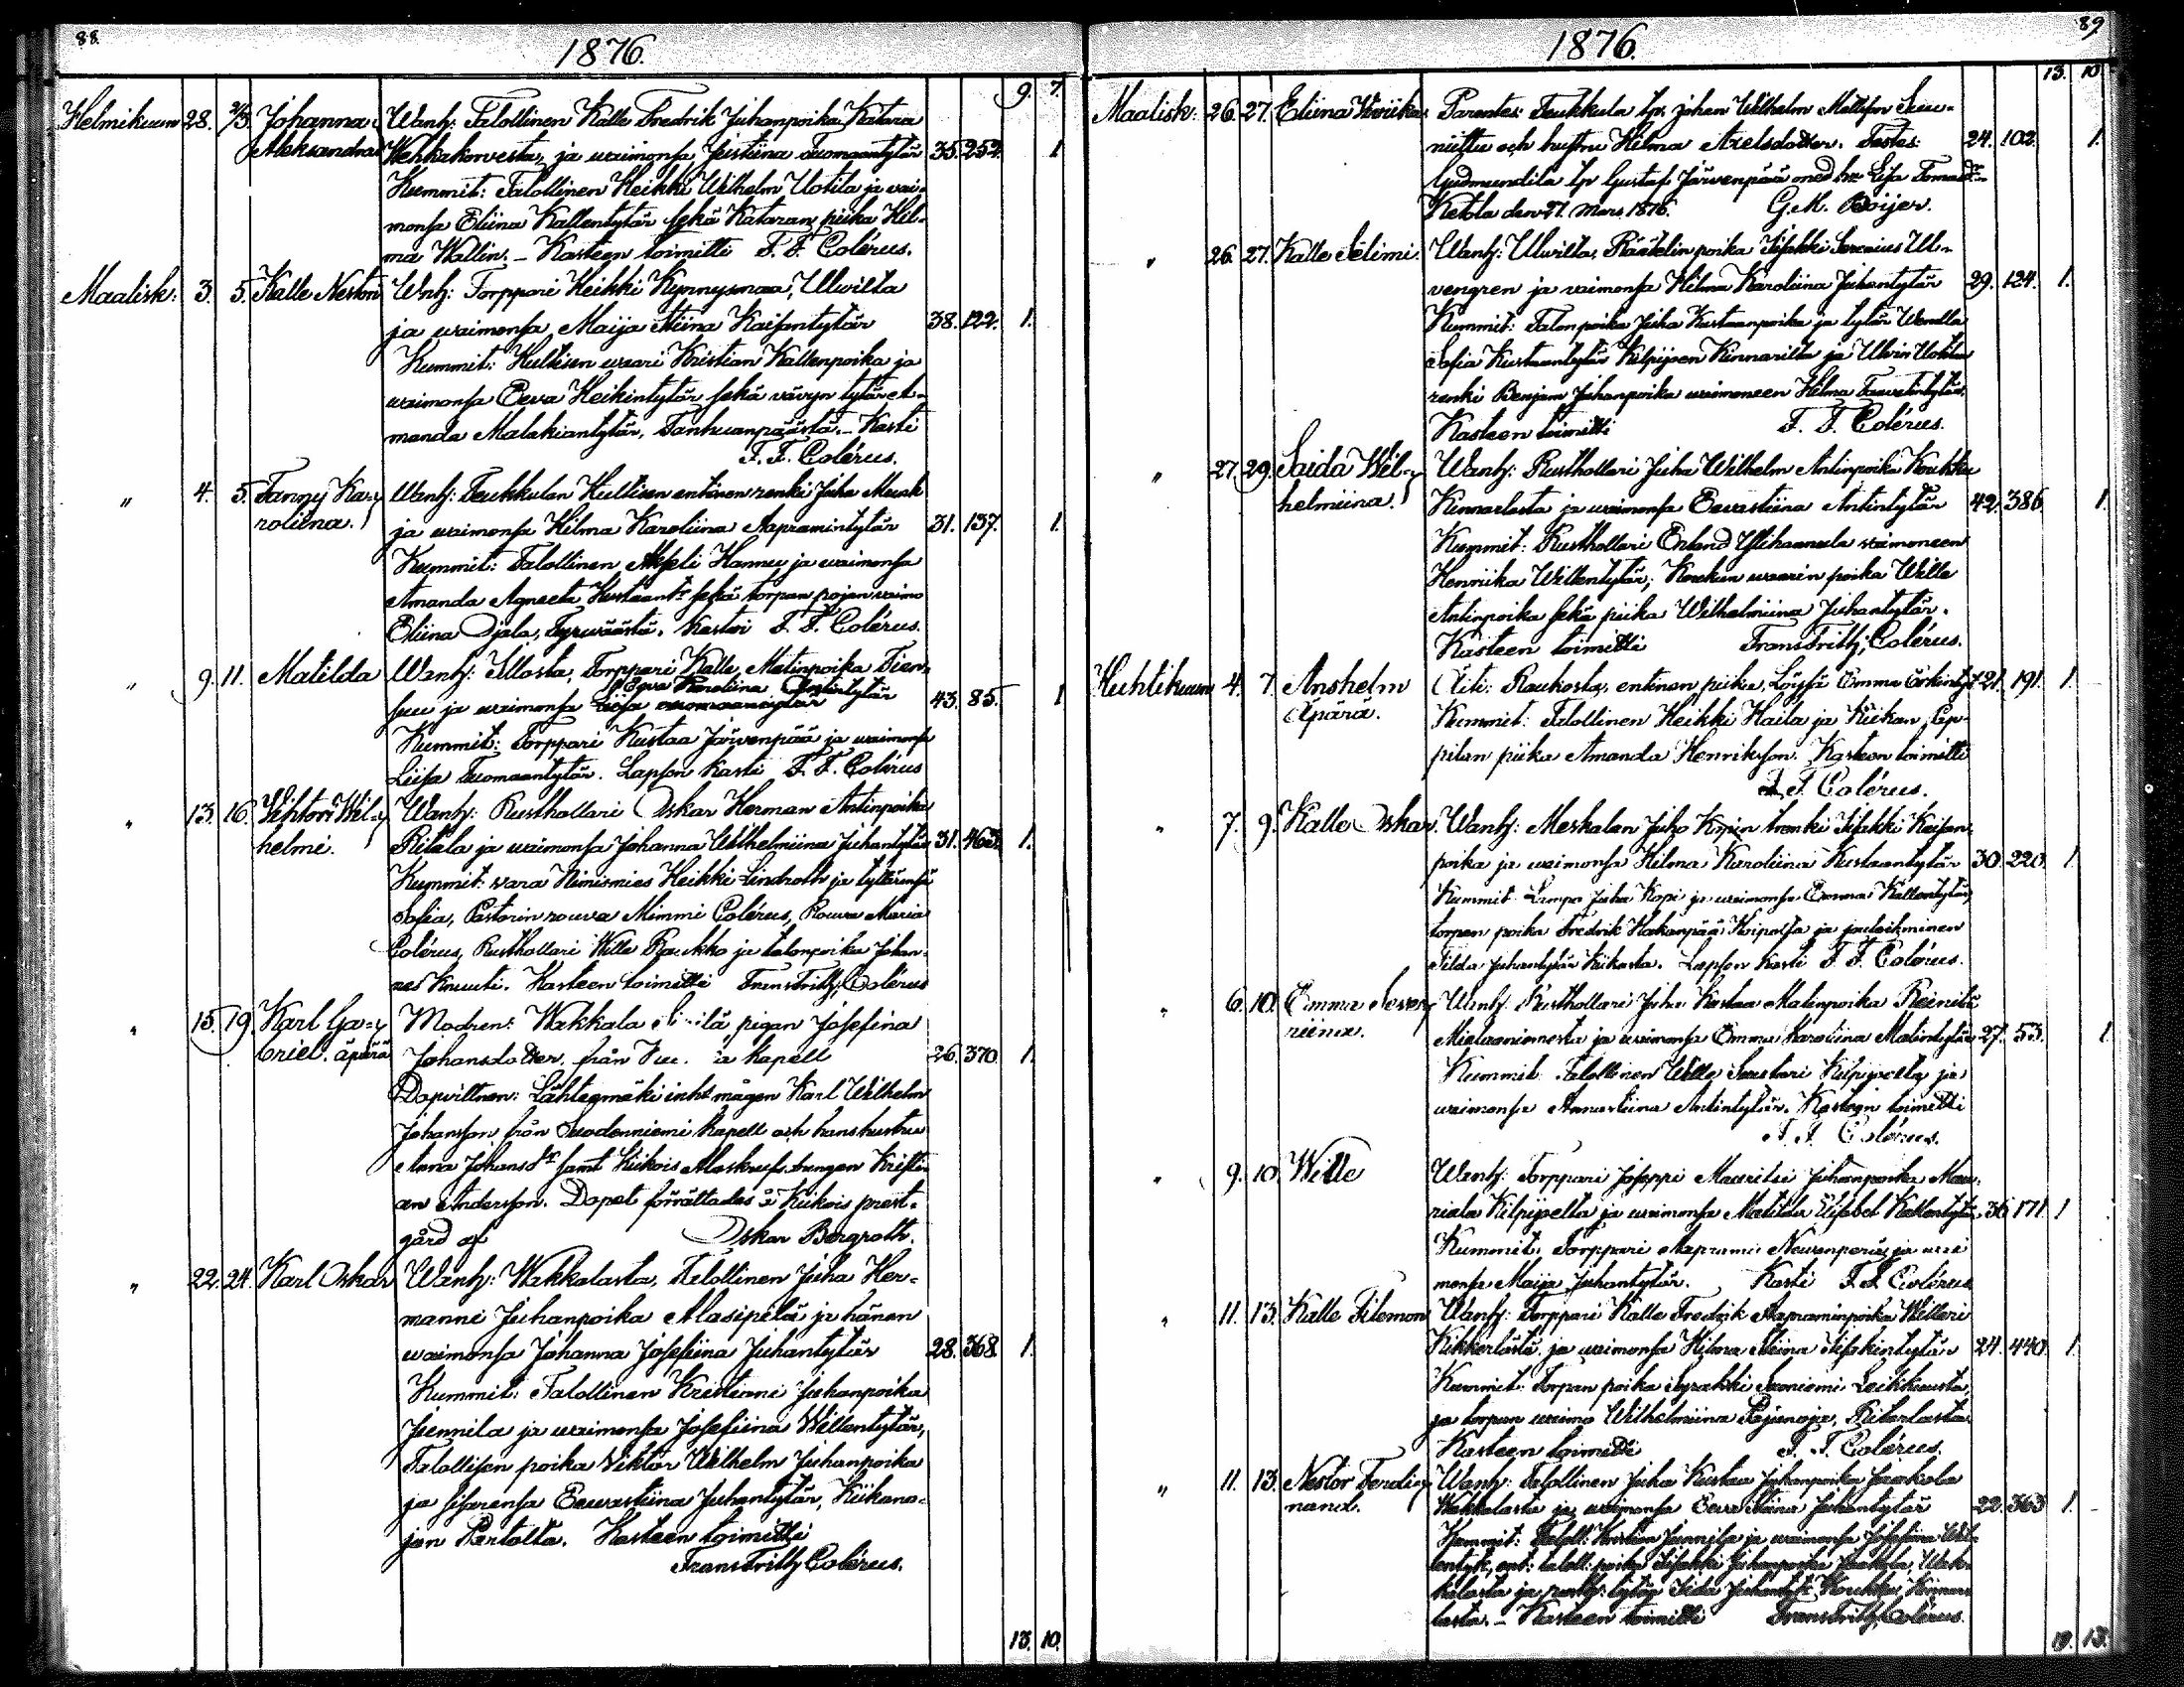 88.
1876.
9. 7.
Helmikuun 28. 2/3. Johanna Wanh: Talollinen Kalle Fredrik Juhanpoika Katara
Aleksandra Wehkakorvesta, ja waimonsa Justiina Tuomaantytär 35. 252. 1
Kummit: Talollinen Heikki Wilhelm Uotila ja wai-
monsa Eliina Kallentytär sekä Kataran piika Hil-
ma Wallin. – Kasteen toimitti F. F. Colérus.
Maalisk: 3. 5. Kalle Nestori Wnh: Torppari Heikki Kynnysmaa, Ulwilta
ja waimonsa Maija Stiina Kaisantytär 38. 122. 1.
Kummit: Hultisen waari Kristian Kallenpoika ja
waimonsa Eeva Heikintytär sekä vävyn tytär A-
manda Malakiantytär, Tanhuanpäästä. – Kasti
F. F. Colérus.
" 4. 5. Fanny Ka- Wanh: Teukkulan Hultisen entinen renki Juha Mursk
roliina. ja waimonsa Hilma Karoliina Aapramintytär 31. 137. 1.
Kummit: Talollinen Akseli Hannu ja waimonsa
Amanda Agneeta Kustaant: sekä torpan pojan vaimo
Eliina Ojala, Tyrwäästä. Kastoi F. F. Colérus.
" 9. 11. Matilda Wanh: Illosta, Torppari Kalle Matinpoika Tien-
Eeva Karoliina Antintytär
suu ja waimonsa 43. 85. 1
Kummit: Torppari Kustaa Järvenpää ja waimonsa
Liisa Tuomaantytär. Lapsen kasti F. F. Colérus
" 13. 16. Vihtori Wil- Wanh: Rusthollari Oskar Herman Antinpoika
helmi. Ritala ja waimonsa Johanna Wilhelmiina Juhantytär 31. 463. 1.
Kummit: vara Nimismies Heikki Lindroth ja tyttärensä
Sofia, Pastorin rouva Mimmi Colérus, Rouva Maria
Colérus, Rusthollari Wille Raukko ja talonpoika Johan-
nes Knuuti. Kasteen toimitti Frans Frithj. Colérus
" 15. 19. Karl Ga- Modren: Wakkala pigan Josefina
briel. äpärä Johansdotter från kapell 26. 370. 1.
Dopvittnen: Lähteenmäki inh: mågen Karl Wilhelm
Johansson från Suodenniemi kapell och hans hustru
Anna Johansdr samt Kiikois Alaskuse drengen Kristi-
an Andersson. Dopet förrättades å Kiikois prest-
gård af Oskar Bergroth.
" 22. 24. Karl Oskar Wanh: Wakkalasta, Talollinen Juha Her-
manni Juhanpoika Alasipilä ja hänen
waimonsa Johanna Josefiina Juhantytär 28. 368. 1.
Kummit: Talollinen Kristianni Juhanpoika
Junnila ja waimonsa Josefiina Willentytär,
Talollisen poika Viktor Wilhelm Juhanpoika
ja sisarensa Eewastiina Juhantytär, Kiikano-
jan Pertolta. Kasteen toimitti
Frans Frithj Colérus.
13. 10.
89.
1876.
13. 10
Maalisk: 26. 27. Eliina Wiviika Parentes: Teukkula tp: Johan Wilhelm Mattsson Suu-
niittu och hustru Hilma Axelsdotter. Testes: 24. 102. 1.
Gudmundila tp: Gustaf Järvenpää med hu Lisa Tomasdr
Ketola den 27. Mars 1876. G. M. Boijer.
" 26. 27. Kalle Selimi Wanh: Ulwilta, Räätälin poika Iisakki Serenius Ul-
vengren ja vaimonsa Hilma Karoliina Juhantytär 29. 124. 1.
Kummit: Talonpoika Juha Kustaanpoika ja tytär Wendla
Sofia Kustaantytär Kilpijoen Kinnarilta ja Ulvin Uotilan
renki Benjam Juhanpoika waimoneen Helma Taavetintytär.
Kasteen toimitti F. F. Colérus.
" 27. 29. Saida Wil- Wanh: Rusthollari Juha Wilhelm Antinpoika Koukku
helmiina. Kinnarlasta ja waimonsa Eevastiina Antintytär 42. 386. 1.
Kummit: Rusthollari Erland Ylihannula waimoneen
Henriika Willentytär; Koukun waarin poika Wille
Antinpoika sekä piika Wilhelmiina Juhantytär.
Kasteen toimitti Frans Frithj. Colérus.
Huhtikuun 4. 7. Anshelm Äiti: Raukosta, entinen piika, Löysä Emma Erkintyt. 21. 191. 1.
Äpärä. Kummit: Talollinen Heikki Haila ja Kiikan Pap-
pilan piika Amanda Henriksson. Kasteen toimitti
F. F. Colérus.
" 7. 9. Kalle Oskar. Wanh: Meskalan Juho Kopin trenki Iisakki Kaisan-
poika ja waimonsa Hilma Karoliina Kustaantytär 30. 220. 1.
Kummit: Lampu Juha Kopi ja waimonsa Emma Kallentytär,
torpan poika Fredrik Hakanpää Koipulta ja
Tilda Juhantytär Kiikasta. Lapsen kasti F. F. Colérus.
" 6. 10. Emma Seve- Wanh: Rusthollari Juha Kustaa Matinpoika Reinilä
riina. ja waimonsa Emma Karoliina Matintytär 27. 53. 1.
Kummit: Talollinen Wille Suutari Kilpijoelta ja
waimonsa Annastiina Antintytär. Kasteen toimitti
F. F. Colérus.
" 9. 10. Wille Wanh: Torppari Joseppi Mauritsi Juhanpoika Mau-
riala Kilpijoelta ja waimonsa Matilda Elisabet Kallentytär 36. 171. 1
Kummit: Torppari Aaprami Nevanperä ja wai-
monsa Maija Juhantytär. Kasti F. F. Colérus
" 11. 13. Kalle Filemon Wanh: Torppari Kalle Fredrik Aapraminpoika Willari
Kikkerlästä, ja waimonsa Hilma Stiina Iisakintytär 24. 440. 1.
Kummit: Torpan poika Syrakki Saoniemi Leikkuusta,
ja torpan waimo Wilhelmiina Pajunoja, Ritarlasta
Kasteen toimitti F. F. Colérus.
" 11. 13. Nestor Ferdi- Wanh: Talollinen Juha Kustaa Juhanpoika Jaakola
nand. Wakkalasta ja waimonsa Eevastiina Juhantytär 22. 363 1.
Kummit: Taloll: Kristian Junnila ja waimonsa Josefiina Wil-
lentyt:, ent: taloll: poika Iisakki Juhanpoika Jaakola, Wak-
kalasta ja rusth: tytär Iida Juhantyt: Koukku, Kinnar-
lasta. – Kasteen toimitti Frans Frithj. Colérus.
19. 13.